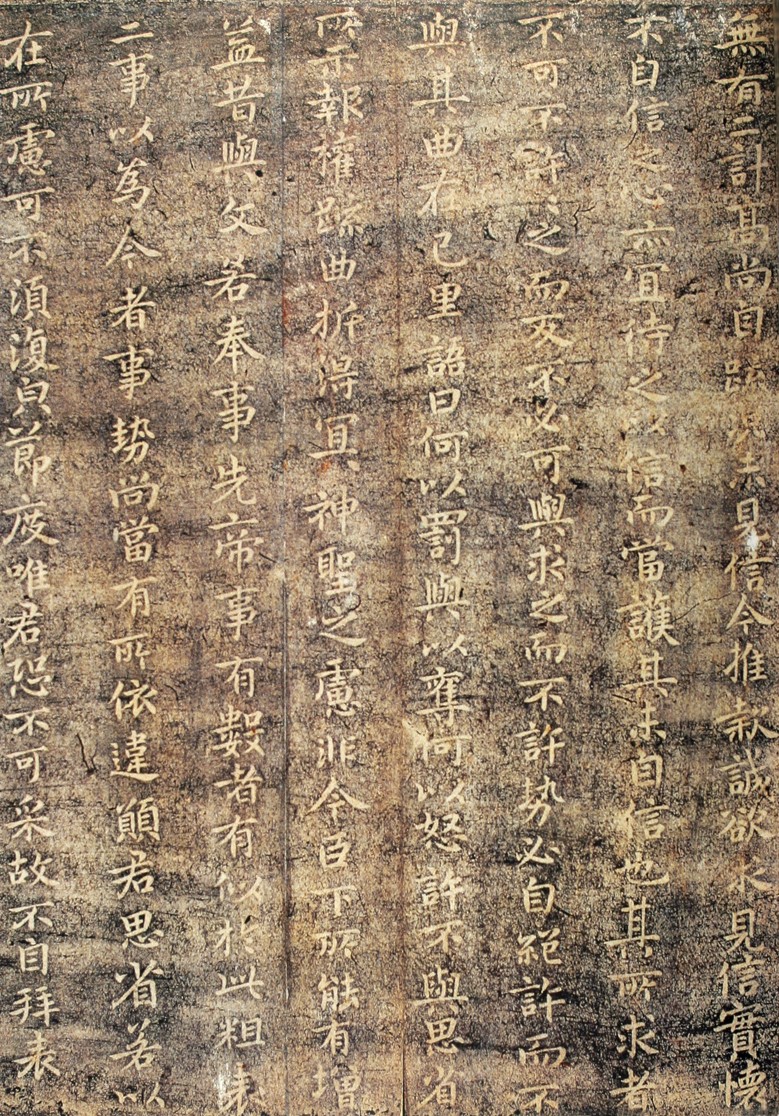 無有二計高尚自疏況未見信今推款誠欲求見信實懷
不自信之心亦宜待之以信而當護其未自信也其所求者
不可不許許之而反不必可與求之而不許勢必自絕許而不
與其曲在己里語曰何以罰與以奪何以怒許不與思省
所示報權疏曲折得宜神聖之慮非今臣下所能有增
益昔與文若奉事先帝事有數者有似於此粗表
二事以為今者事勢尚當有所依違願君思省若以
在所慮可不須復皃節度唯君恐不可采故不自拜表